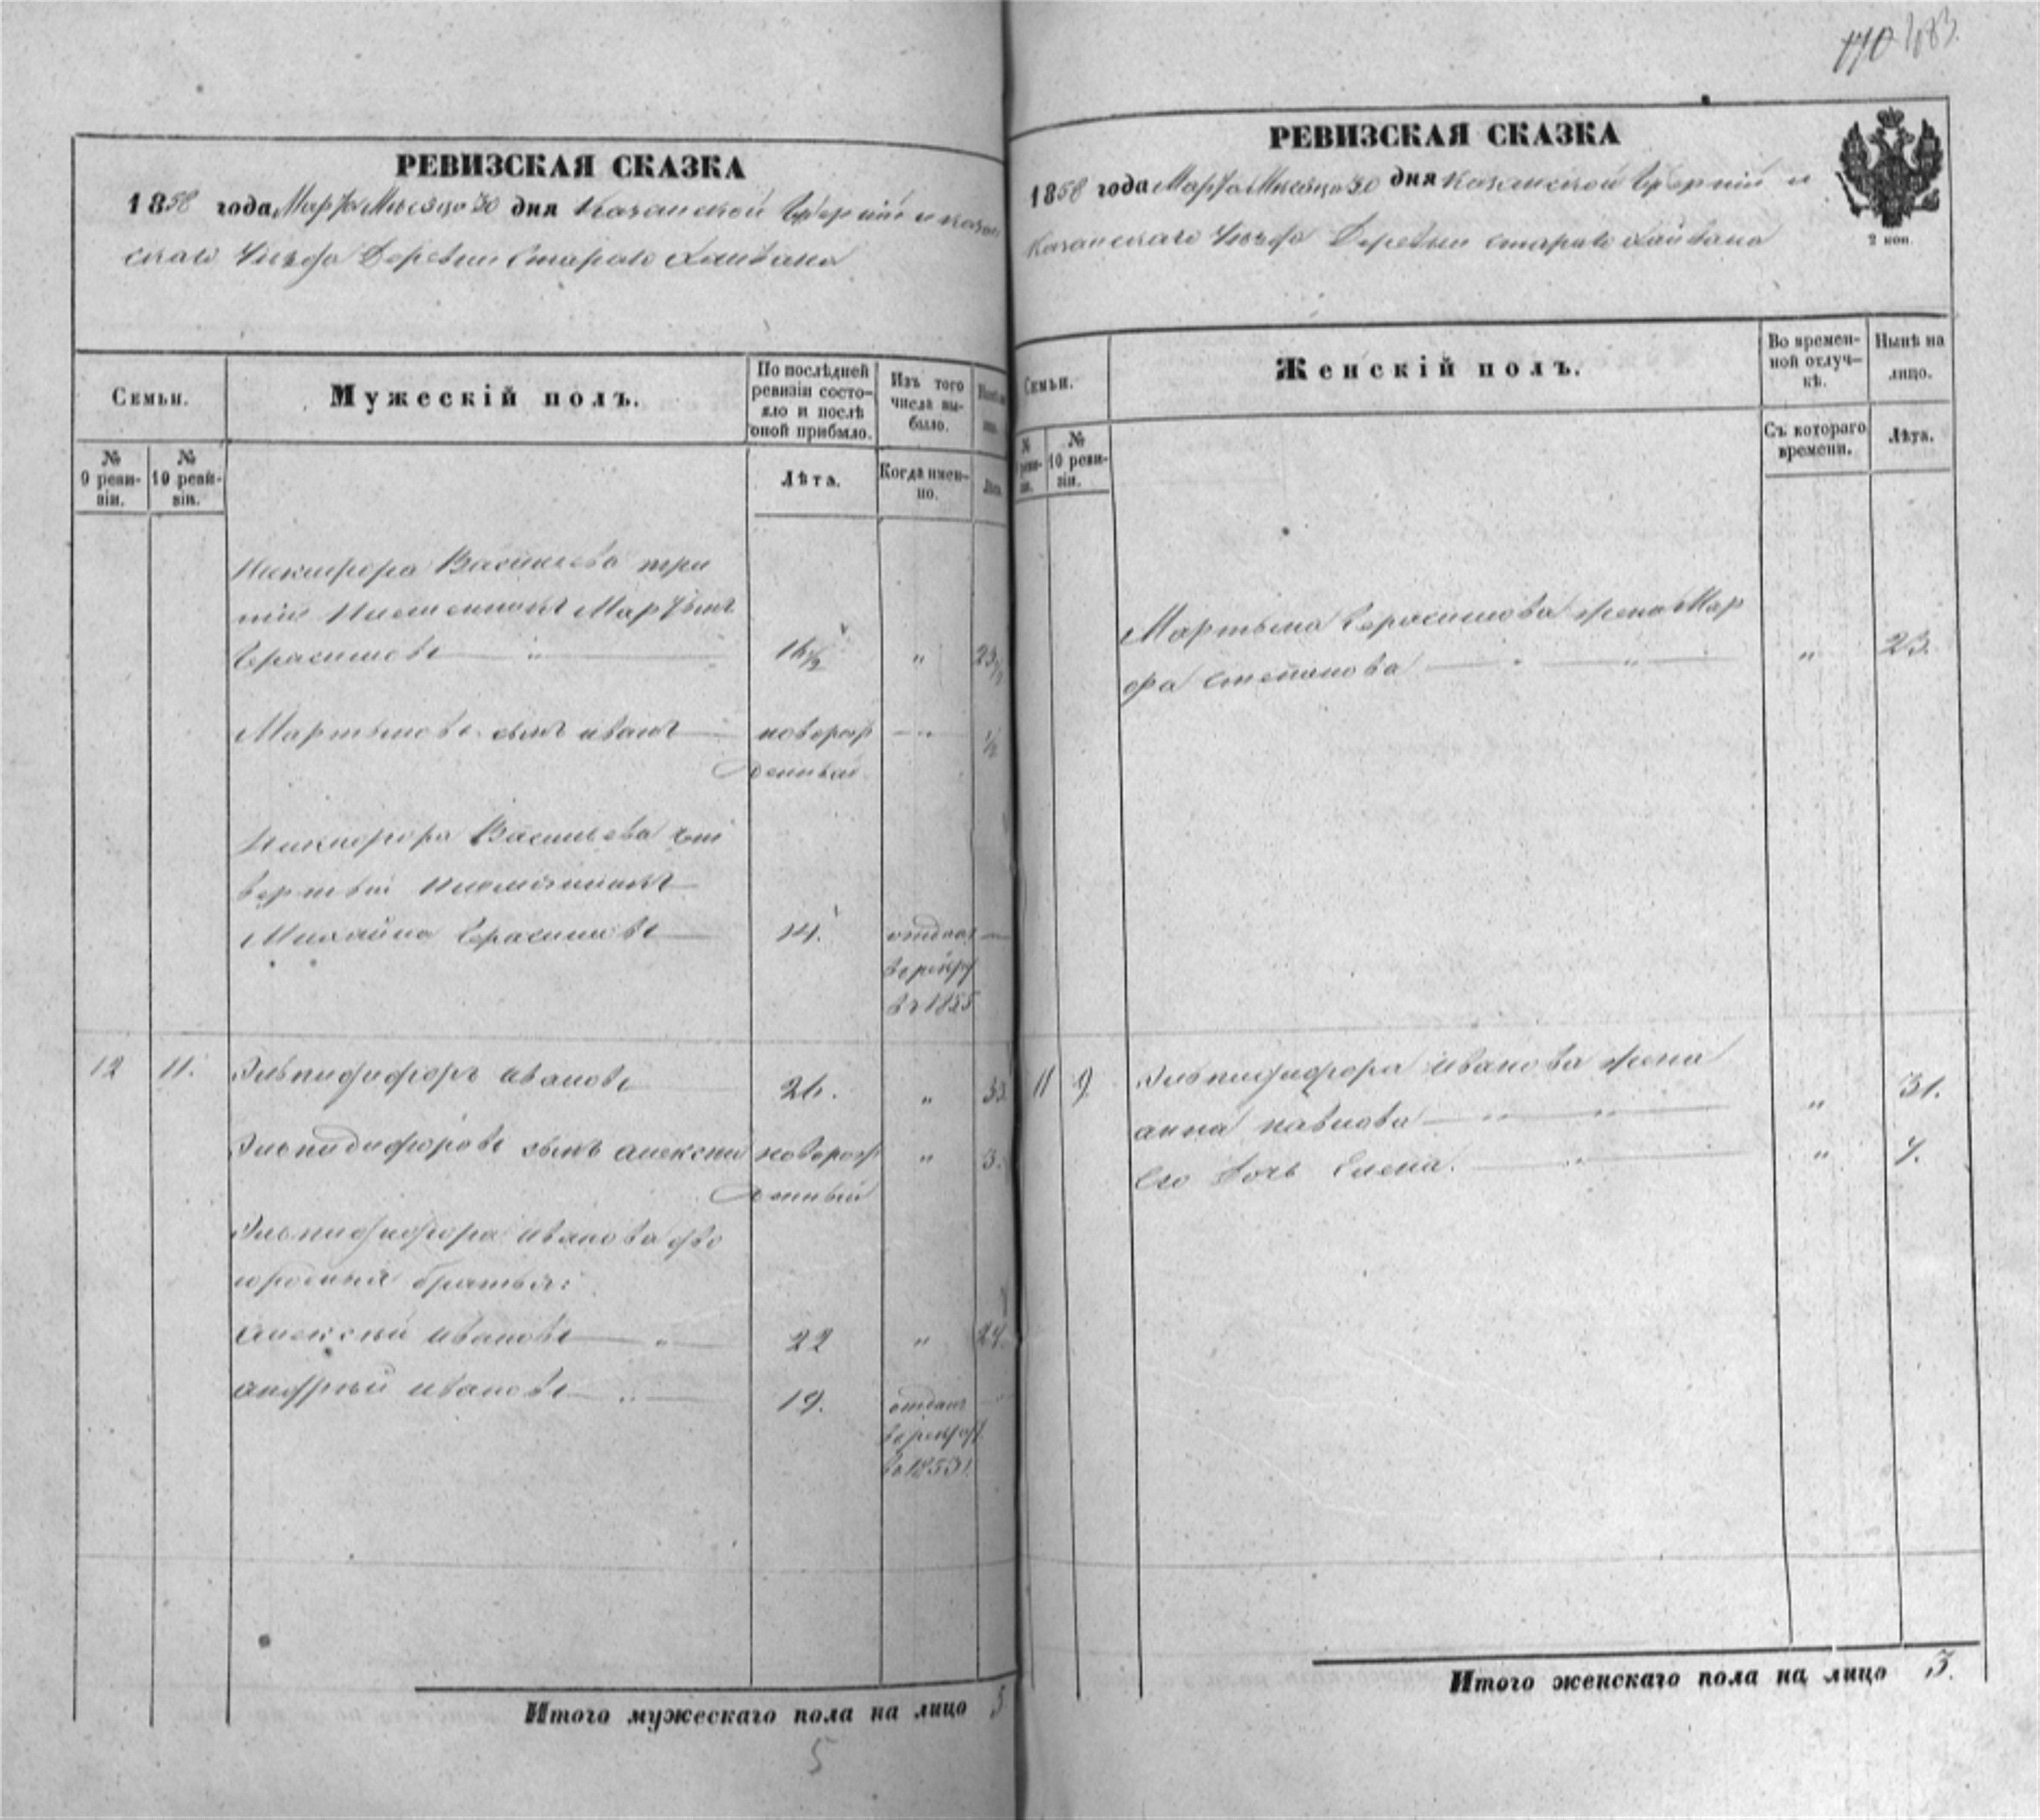 РЕВИЗСКАЯ СКАЗКА
1858 года Марта Месяца 30 дня Казанской Губернии и Казан
скаго Уезда Деревни Стараго
Семьи.
Мужескій полъ.
По послѣдней ревизіи состояло и послѣ оной прибыло.
Изъ того числа выбыло.
№ 9 ревизіи.
№ 10 ревизіи.
Лѣта.
Когда именно.
Никифора Васильева тре
тий Племенникъ Мартынъ
Герасимовъ 16½ " 23½
Мартыновъ сынъ иванъ новорож
денный " ½
Никифора Васильева чет
вертый племянникъ
Михайла Герасимовъ 14. отданъ
в рекру
въ 1855
12 11. Эльпидифоръ ивановъ 26. " 33
Эльпидифоровъ сынъ алексей новорож
денный " 3.
Эльпидифора иванова дво
юродныя братья:
алексей ивановъ " 22 "
андрей ивановъ " 19. отданъ
в рекру
въ 1853
Итого мужескаго пола на лицо 5
5
170 183.
РЕВИЗСКАЯ СКАЗКА
1858 года Марта Месяца 30 дня Казанской Губернии и
Казанскаго Уезда Деревни стараго
2 коп.
Семьи.
Женскій полъ.
Во временной отлучкѣ.
Нынѣ на лицо.
№ 10 ревизіи.
Съ котораго времени.
Лѣта.
Мартына Герасимова жена Мар
фа степанова " " 23.
11 9. Эльпидифора иванова жена
анна павлова " " " 31.
Его дочь Елена. " " 7.
Итого женскаго пола на лицо 3.